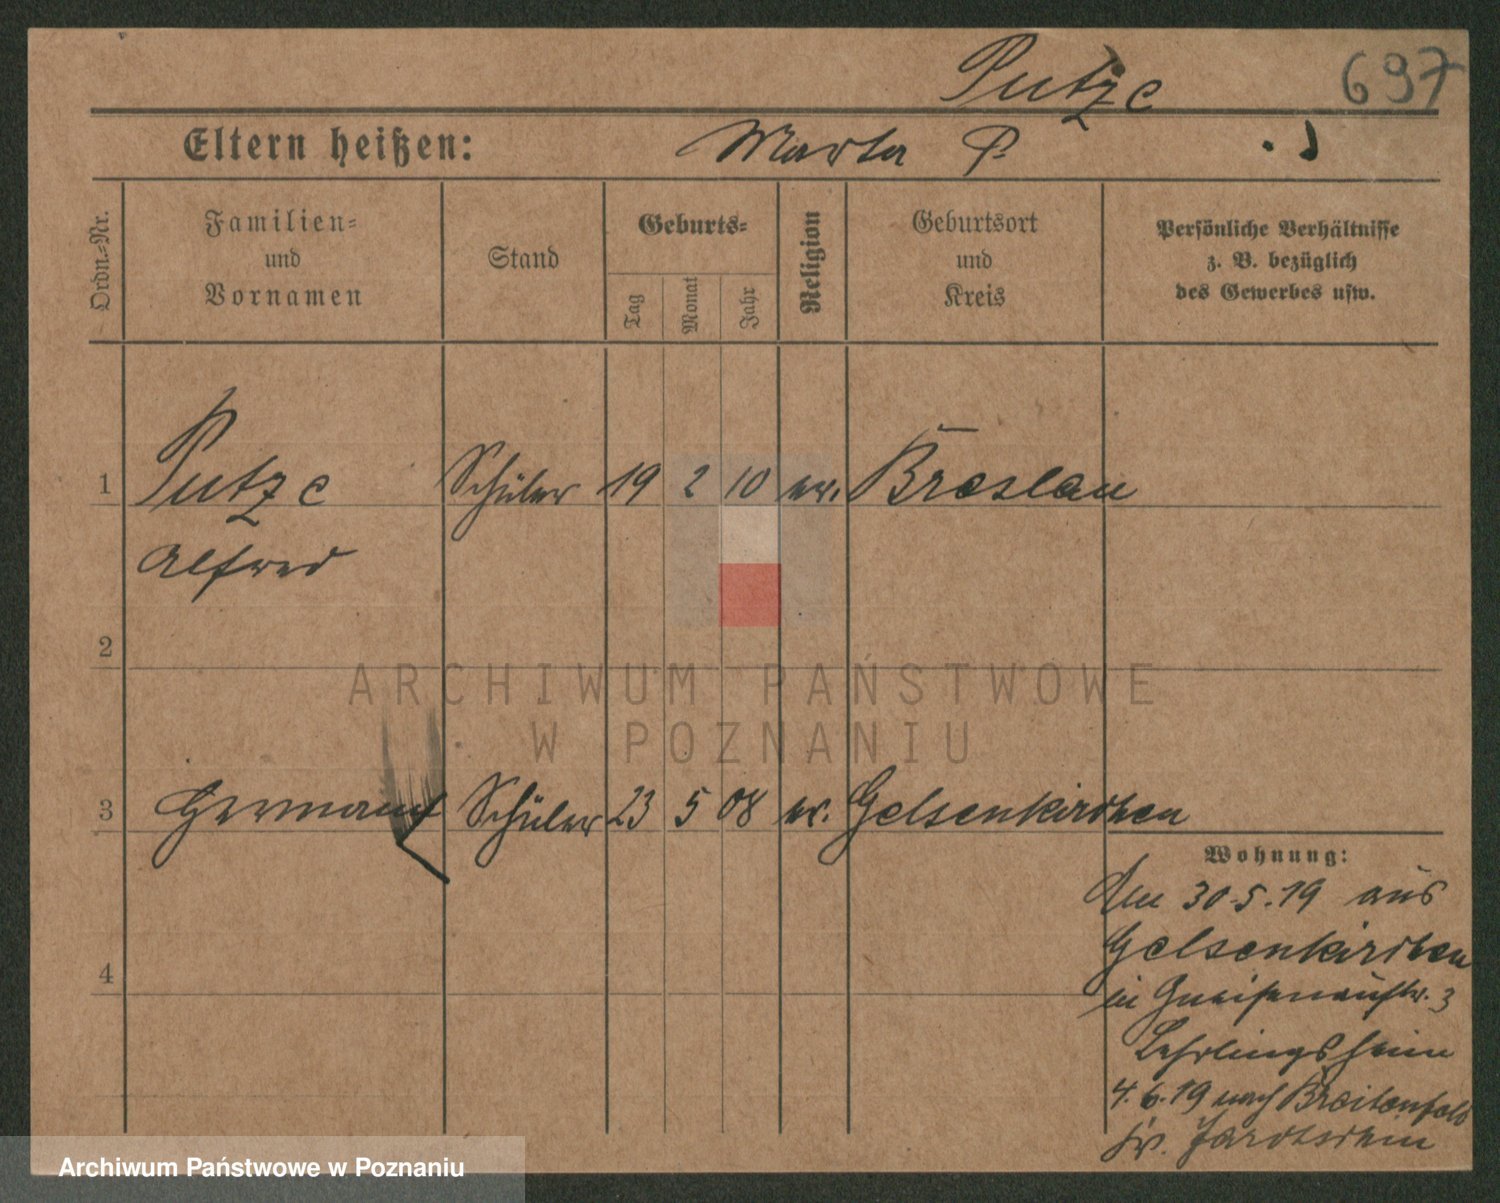 Putze 697
Eltern heißen: Marta P.
Ordn.=Nr.
Familien=
und
Vornamen
Stand
Geburts=
Tag
Monat
Jahr
Religion
Geburtsort
und
Kreis
Persönliche Verhältnisse
z. B. bezüglich
des Gewerbes usw.
1 Putze Schüler 19 2 10 ev. Breslau
Alfred
2
ARCHIWUM PAŃSTWOWE
W POZNANIU
3 Hermann Schüler 23 5 08 ev. Gelsenkirchen
Wohnung:
Am 30.5.19 aus
Gelsenkirchen
4
in Gneisenaustr. 3
Lehrlingsheim
4.6.19 nach Breitenfeld
Kr.
Archiwum Państwowe w Poznaniu